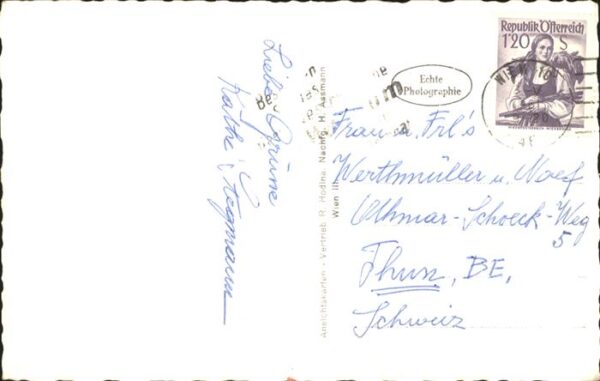 Liebe Grüsse
Käthi Stegmann
Ansichtskarten - Vertrieb R. Hodina, Nachfg. H. Assmann
Wien III
Echte
Photographie
Republik Österreich
1'20 S
WIEN
Frau u. Frl's
Werthmüller u.
Othmar-Schoeck-Weg
5
Thun, BE,
Schweiz